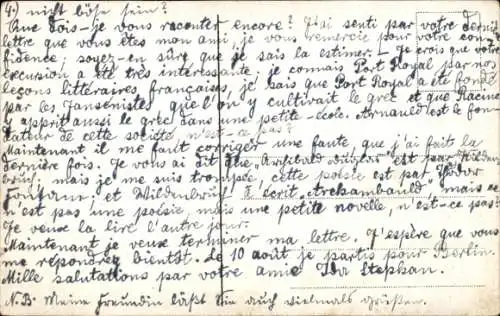 4.) nicht böse sein?
Que dois-je vous raconter encore? J'ai senti par votre dernière
lettre que vous êtes mon ami, je vous remercie pour votre con-
fidence; soyez-en sûre que je sais la estimer. Je crois que votre
excursion a été très intéressante, je connais Port Royal par nos
leçons littéraires françaises, je sais que Port Royal a été fondé
par les Jansénistes que l'on y cultivait le grec et que Racine
y apprit aussi le grec dans une petite école. Arnauld est le fon-
dateur de cette société, n'est-ce pas?
Maintenant il me faut corriger une faute, que j'ai fait la
dernière fois. Je vous ai dit que "Archibald Douglas" est par Wilden-
bruch, mais je me suis trompée, cette poésie est par Theodor
Fontane; et Wildenbruch a écrit "Archambauld", mais ce
n'est pas une poésie, mais une petite novelle, n'est-ce pas?
Je veux la lire l'autre jour.
Maintenant je veux terminer ma lettre. J'espère que vous
me répondrez bientôt. Le 10 août je partis pour Berlin.
Mille salutations par votre amie Ida Stephan.
N.B. Meine Freundin läßt Sie auch vielmals grüßen.